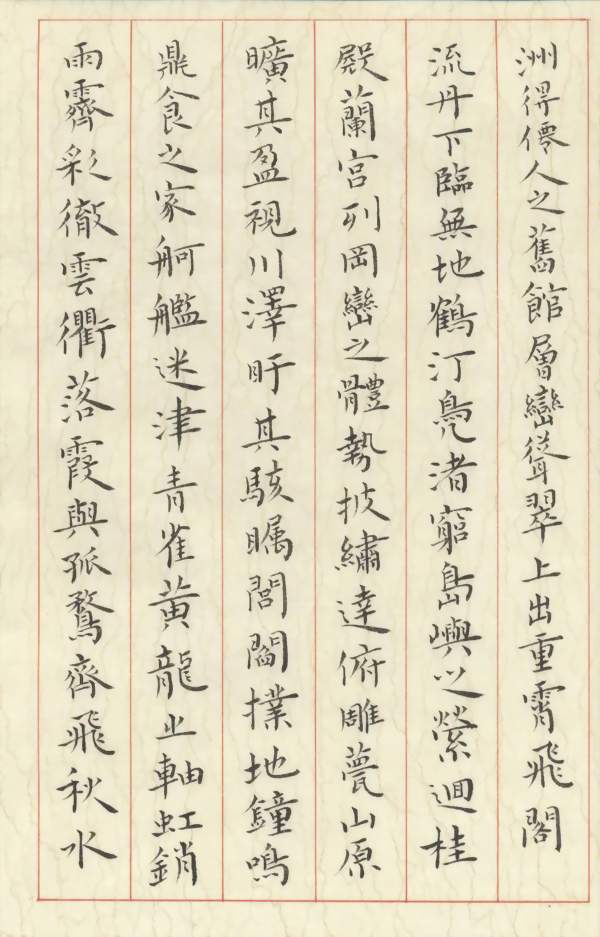 洲得僊人之舊館層巒聳翠上出重霄飛閣
流丹下臨無地鶴汀鳧渚窮島嶼之縈迴桂
殿蘭宮列岡巒之體勢披繡闥俯雕甍山原
曠其盈視川澤盱其駭矚閭閻撲地鐘鳴
鼎食之家舸艦迷津青雀黃龍之軸虹銷
雨霽彩徹雲衢落霞與孤鶩齊飛秋水